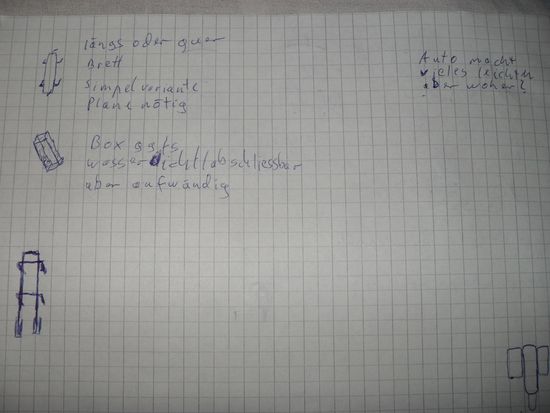 längs oder quer
Brett
Simpelvariante
Plane nötig
Box ggfs
wasserdicht/abschliessbar
aber aufwändig
Auto macht
vieles leichter
aber woher?